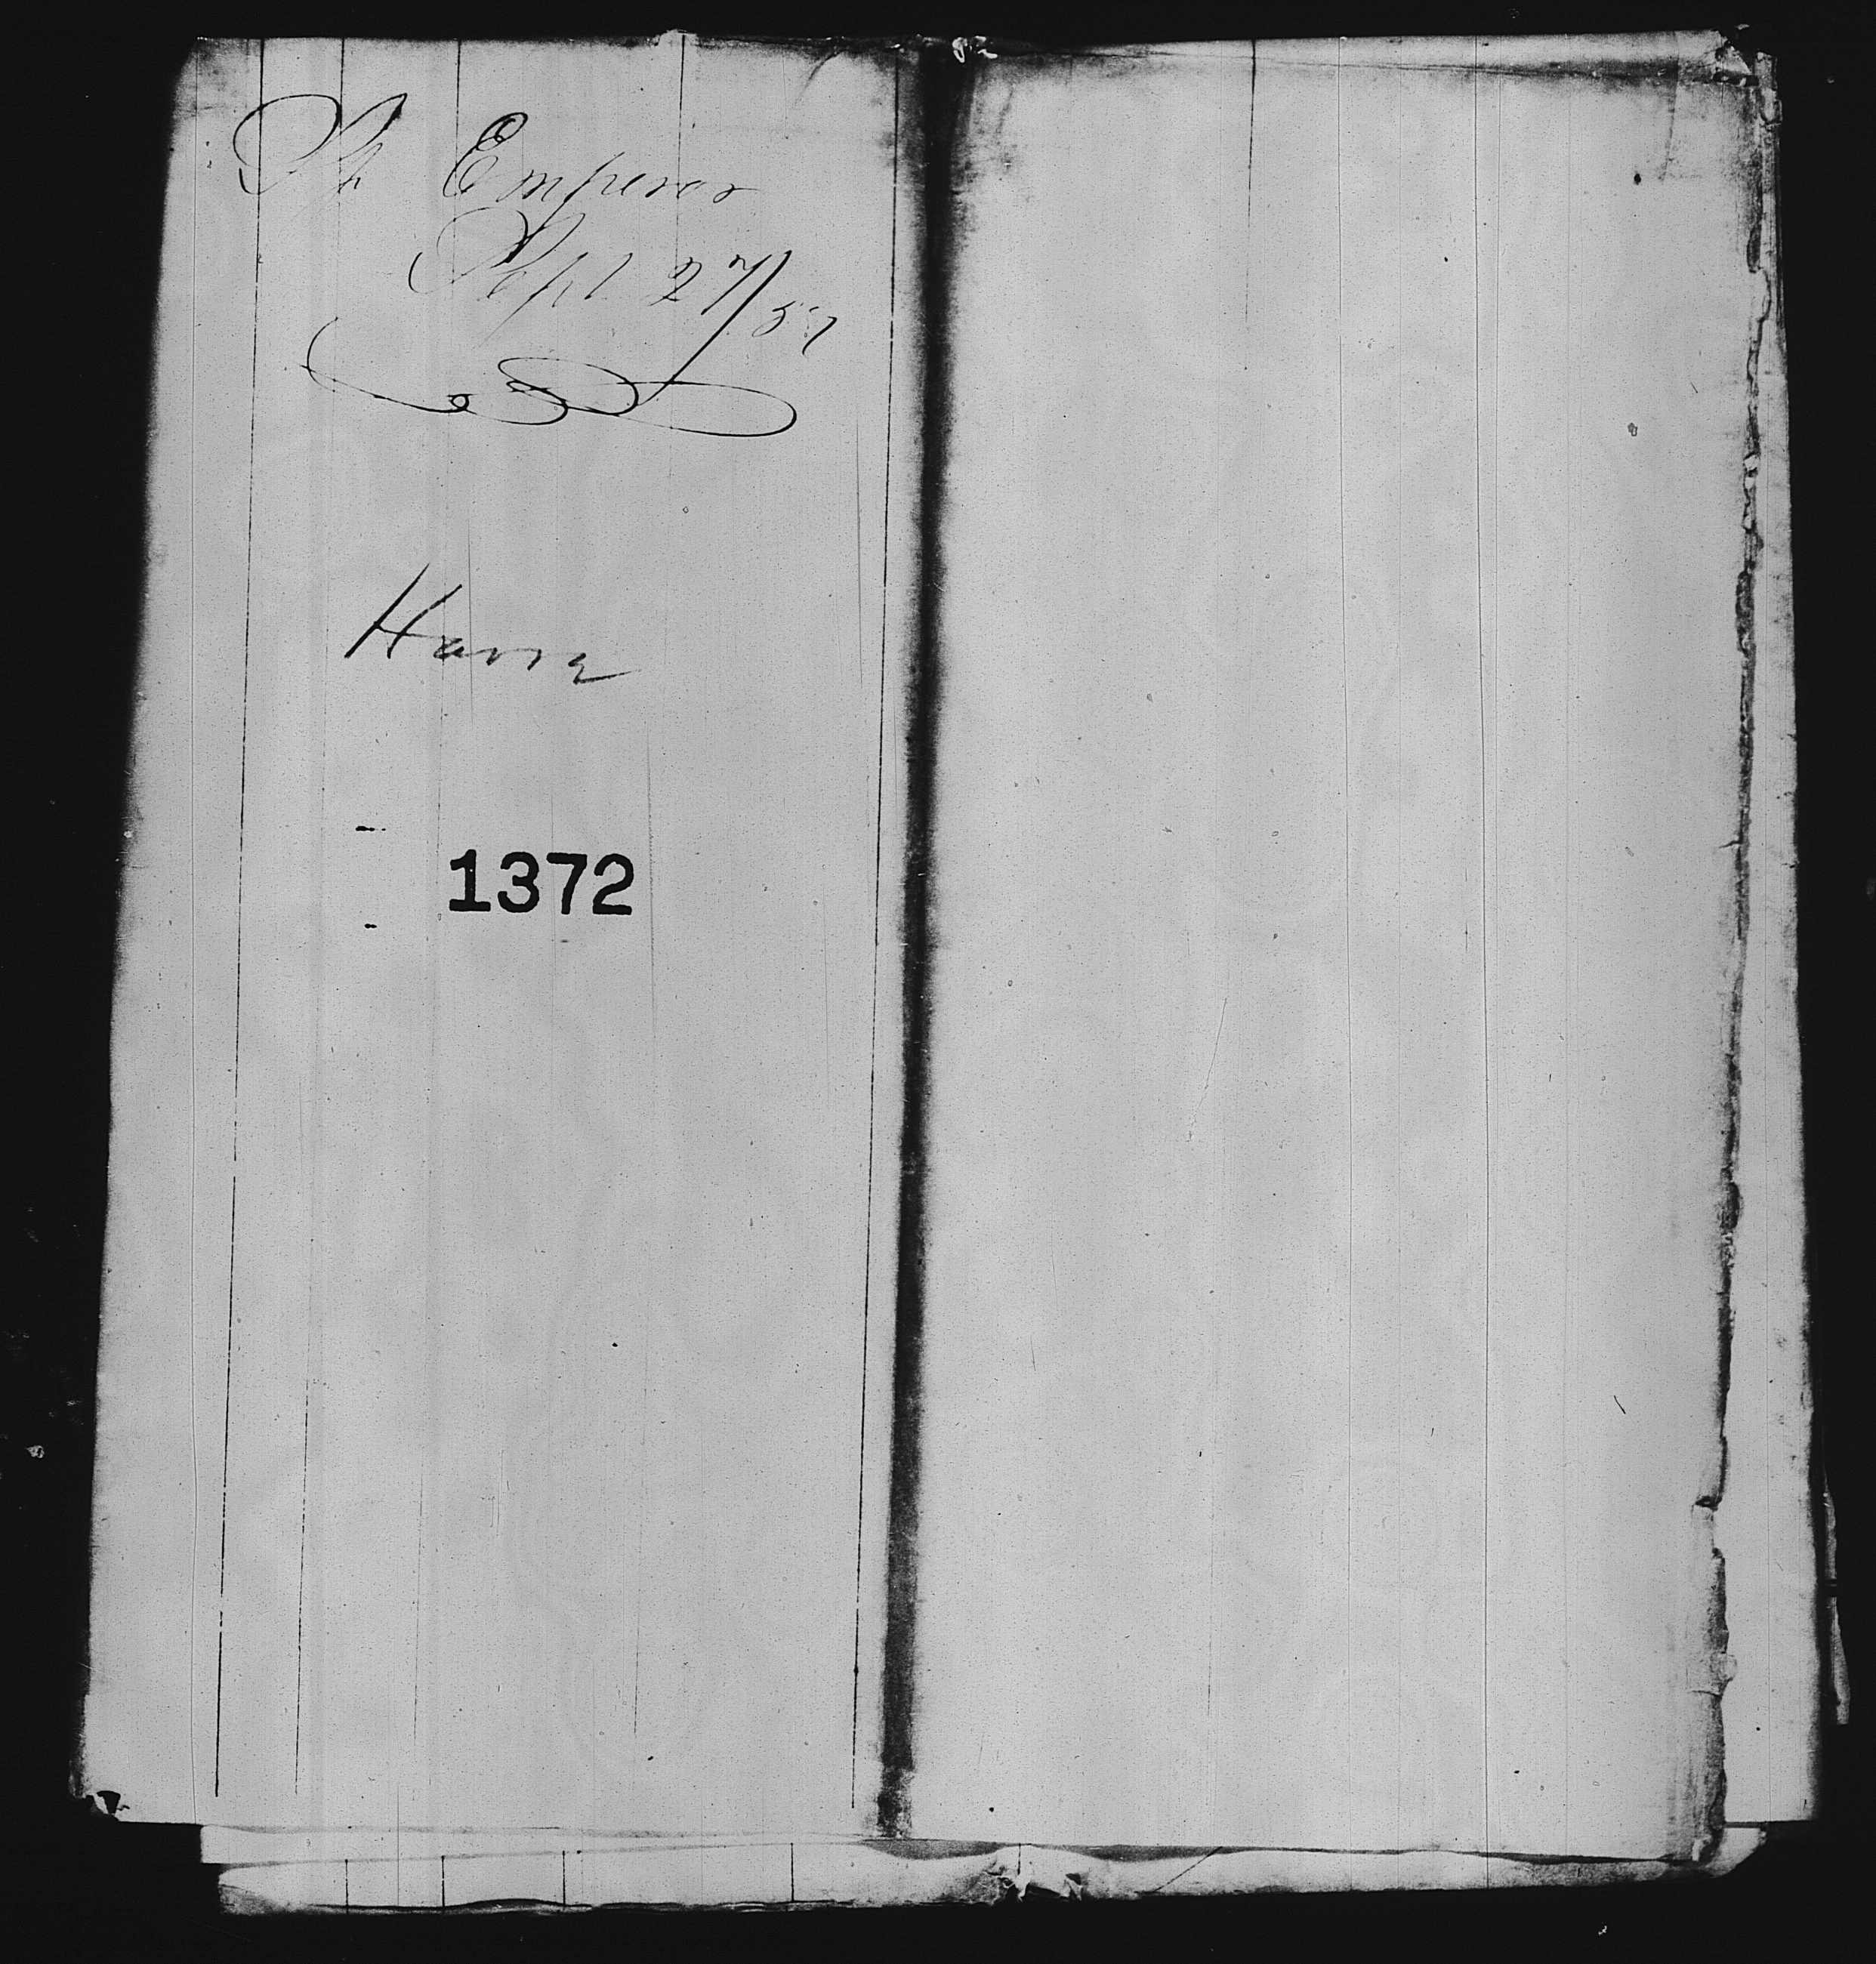 Sh Emperor
Sept 27/57
Havre
1372